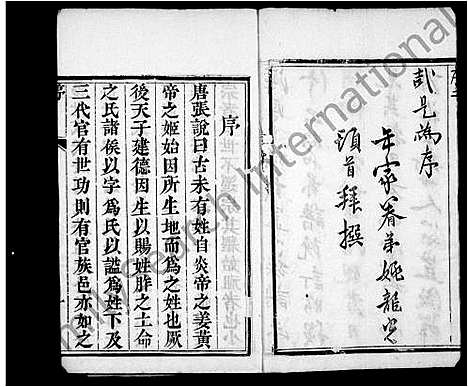 序二
於是為序
年家眷弟姚龍光
頓首拜撰
序
唐張說曰古未有姓自炎帝之姜黃
帝之姬始因所生地而為之姓也厥
後天子建德因生以賜姓胙之土命
之氏諸侯以字為氏以謚為姓下及
三代官有世功則有官族邑亦如之
序
一
international